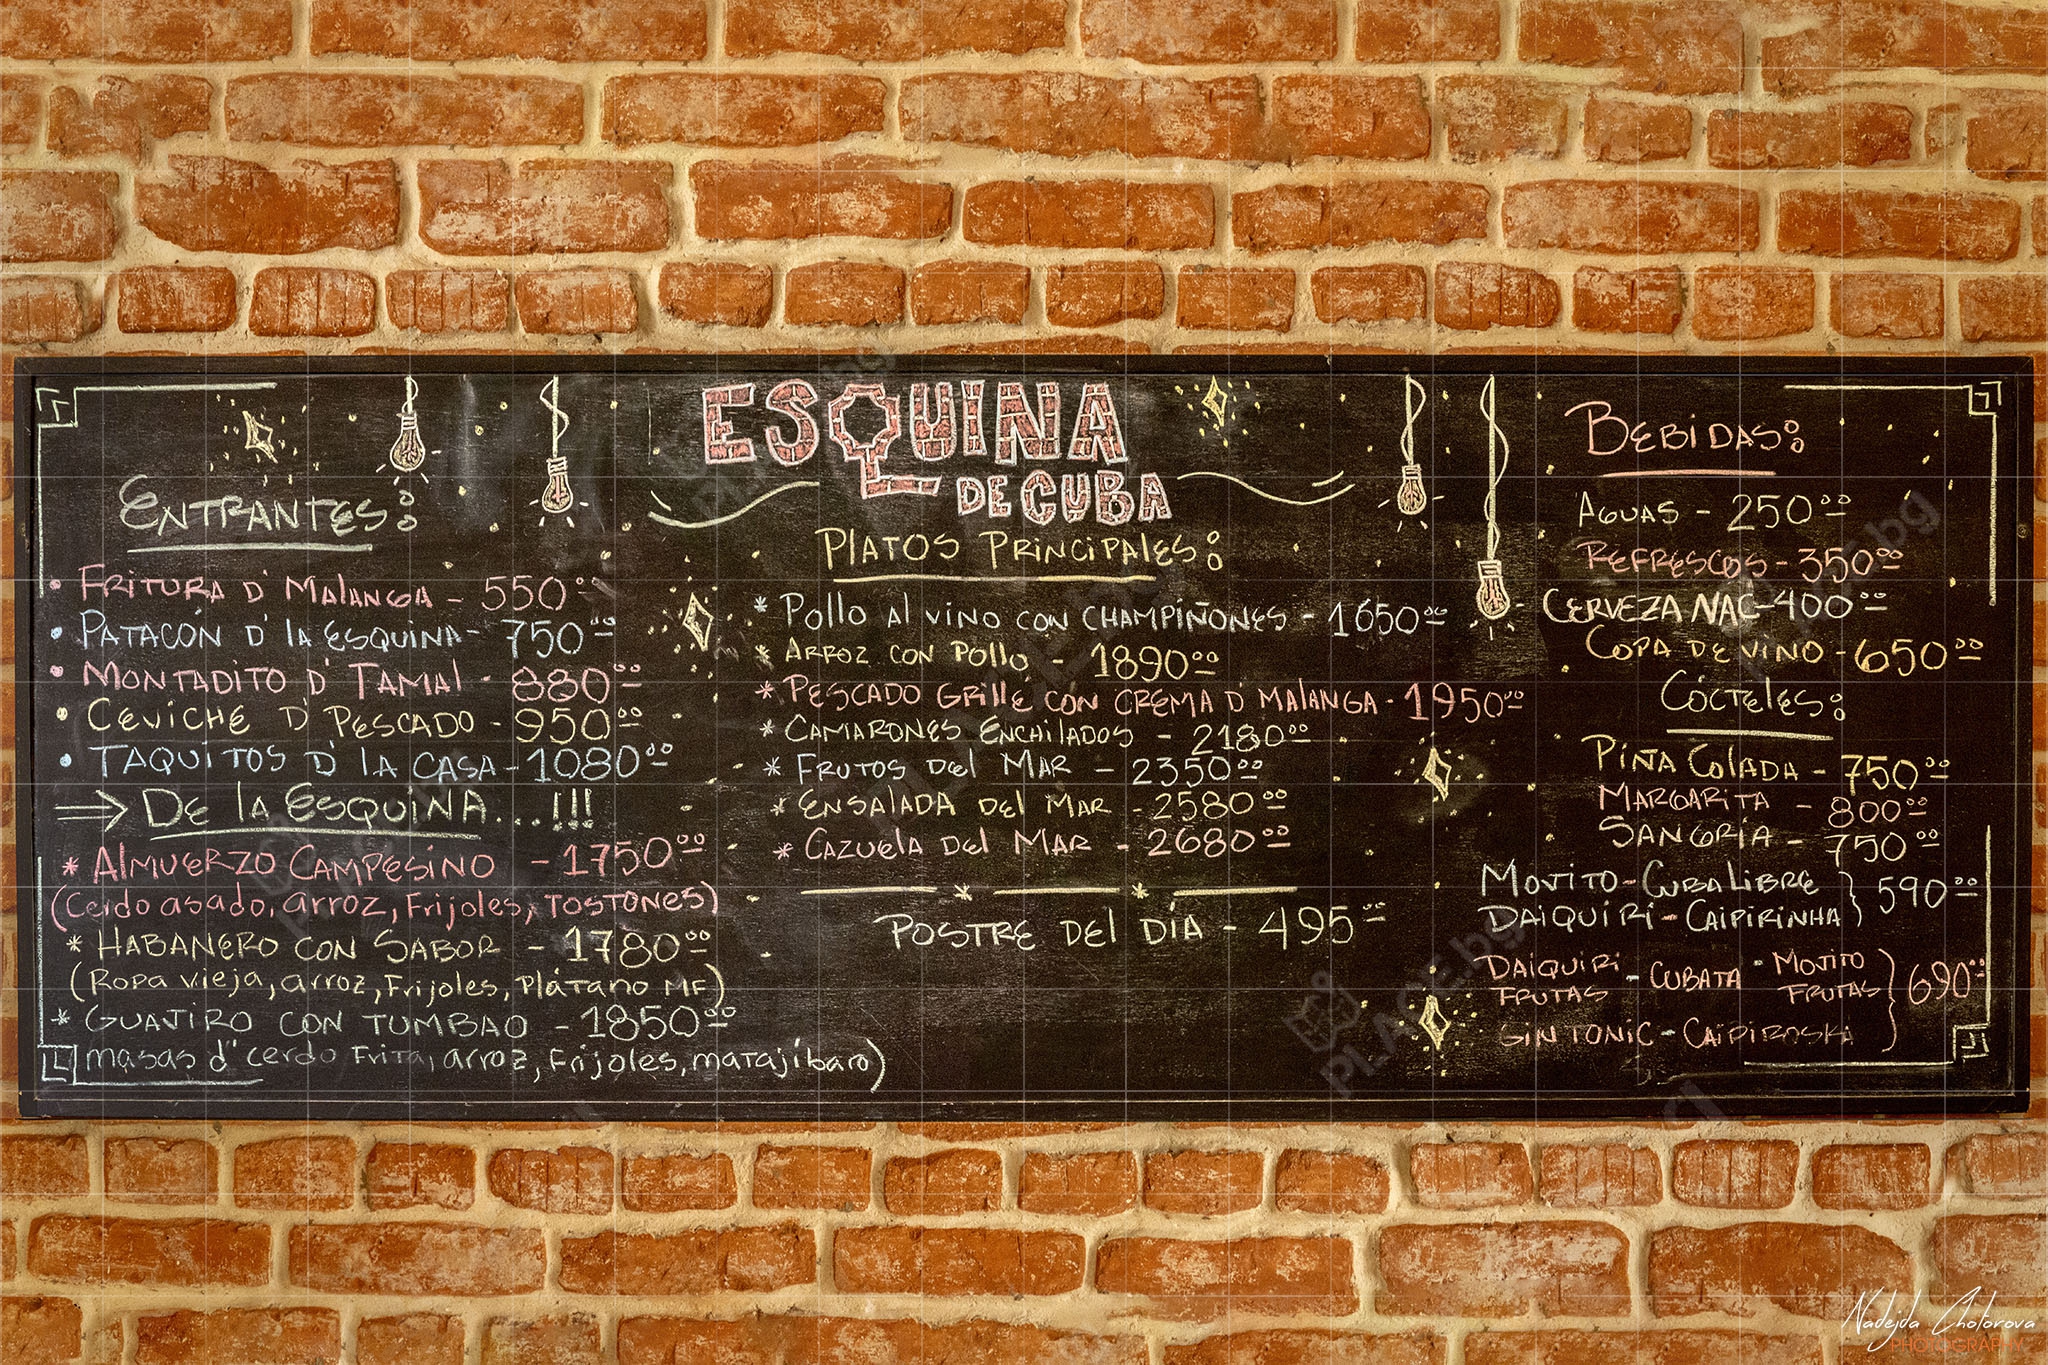 ESQUINA
DE CUBA
ENTRANTES:
• FRITURA D' MALANGA - 550⁰⁰
• PATACÓN D' LA ESQUINA - 750⁰⁰
• MONTADITO D' TAMAL - 880⁰⁰
• CEVICHE D' PESCADO - 950⁰⁰
• TAQUITOS D' LA CASA - 1080⁰⁰
⇒ DE LA ESQUINA...!!!
* ALMUERZO CAMPESINO - 1750⁰⁰
(Cerdo asado, arroz, Frijoles, TOSTONES)
* HABANERO CON SABOR - 1780⁰⁰
(Ropa vieja, arroz, Frijoles, Plátano MF)
* GUAJIRO CON TUMBAO - 1850⁰⁰
masas d" cerdo Frita, arroz, Frijoles, matajíbaro)
PLATOS PRINCIPALES:
* POLLO AL VINO CON CHAMPIÑONES - 1650⁰⁰
* ARROZ CON POLLO - 1890⁰⁰
* PESCADO GRILLÉ CON CREMA D' MALANGA - 1950⁰⁰
* CAMARONES ENCHILADOS - 2180⁰⁰
* FRUTOS DEL MAR - 2350⁰⁰
* ENSALADA DEL MAR - 2580⁰⁰
* CAZUELA DEL MAR - 2680⁰⁰
POSTRE DEL DÍA - 495⁰⁰
BEBIDAS:
AGUAS - 250⁰⁰
REFRESCOS - 350⁰⁰
CERVEZA NAC - 400⁰⁰
COPA DE VINO - 650⁰⁰
CÓCTELES:
PIÑA COLADA - 750⁰⁰
MARGARITA - 800⁰⁰
SANGRÍA - 750⁰⁰
MOJITO - CUBA LIBRE } 590⁰⁰
DAIQUIRI - CAIPIRINHA
DAIQUIRI - CUBATA - MOJITO
FRUTAS FRUTAS } 690⁰⁰
GINTONIC - CAIPIROSKA
Nadejda Cholorova
PHOTOGRAPHY
PLACE.bg